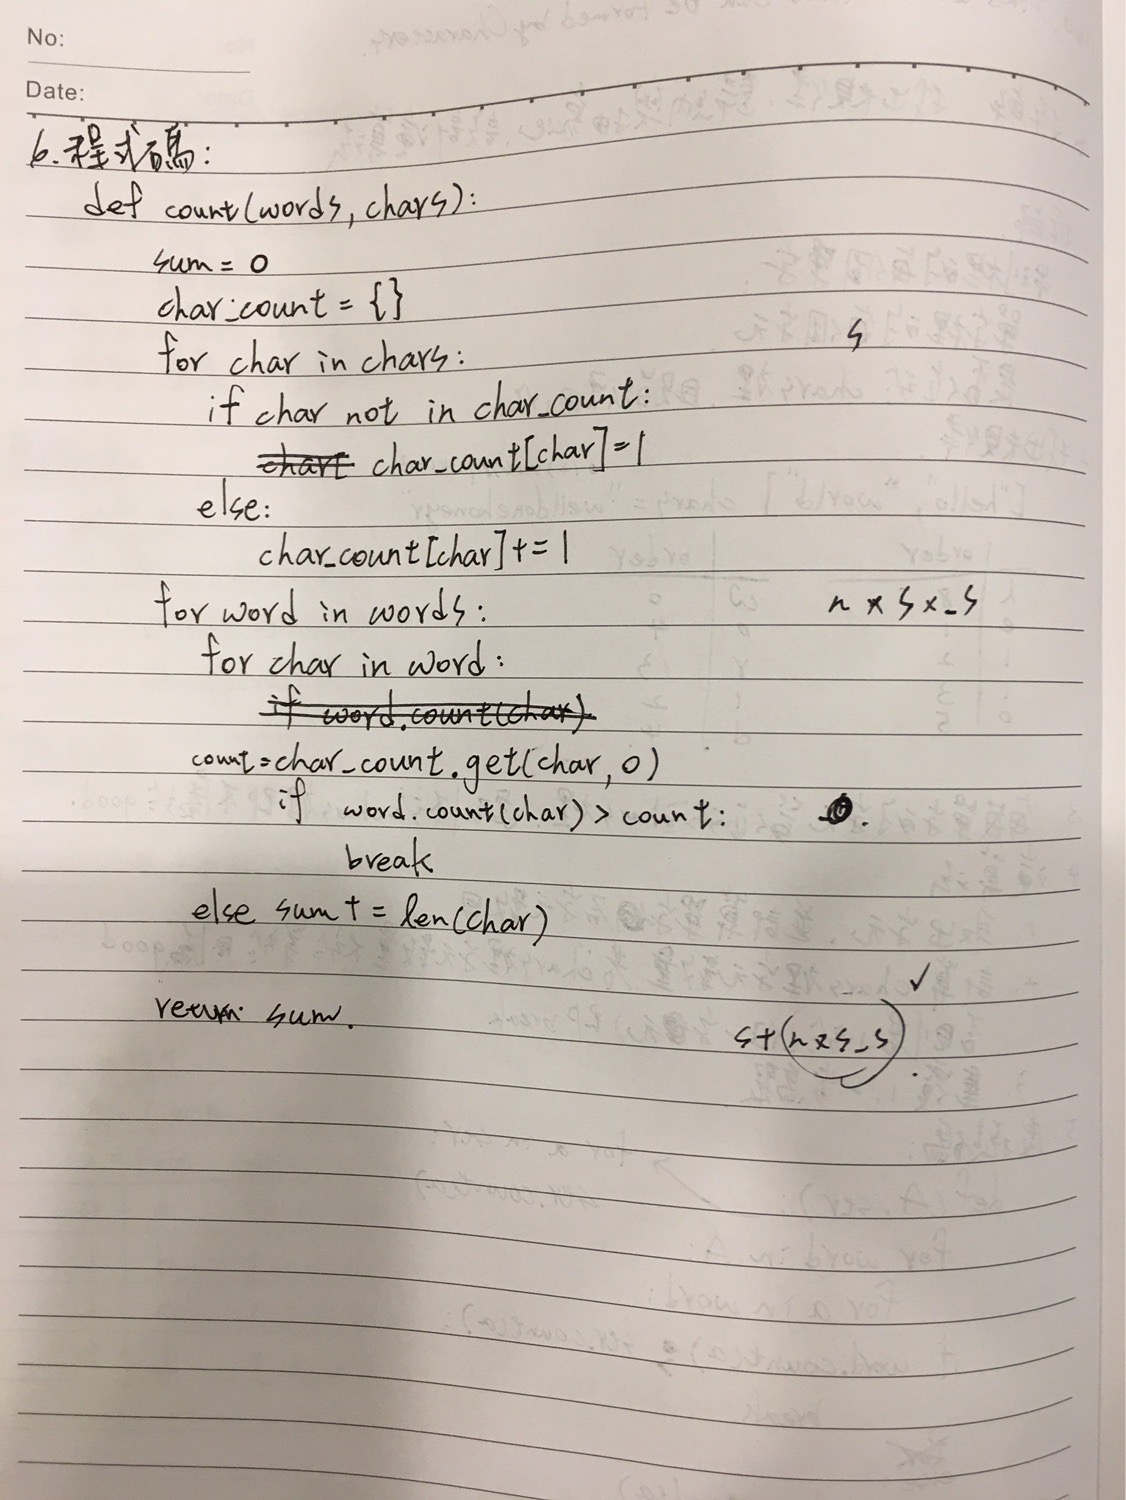 No:
Date:
6.程式碼:
def count(words, chars):
sum = 0
char_count = {}
for char in chars: s
if char not in char_count:
char_count[char]=1
else:
char_count[char]+=1
for word in words: n × s × _s
for char in word:
if word.count(char)
count=char_count.get(char, 0)
if word.count(char) > count:
break
else sum += len(char)
return sum.
s+(n×s_s)